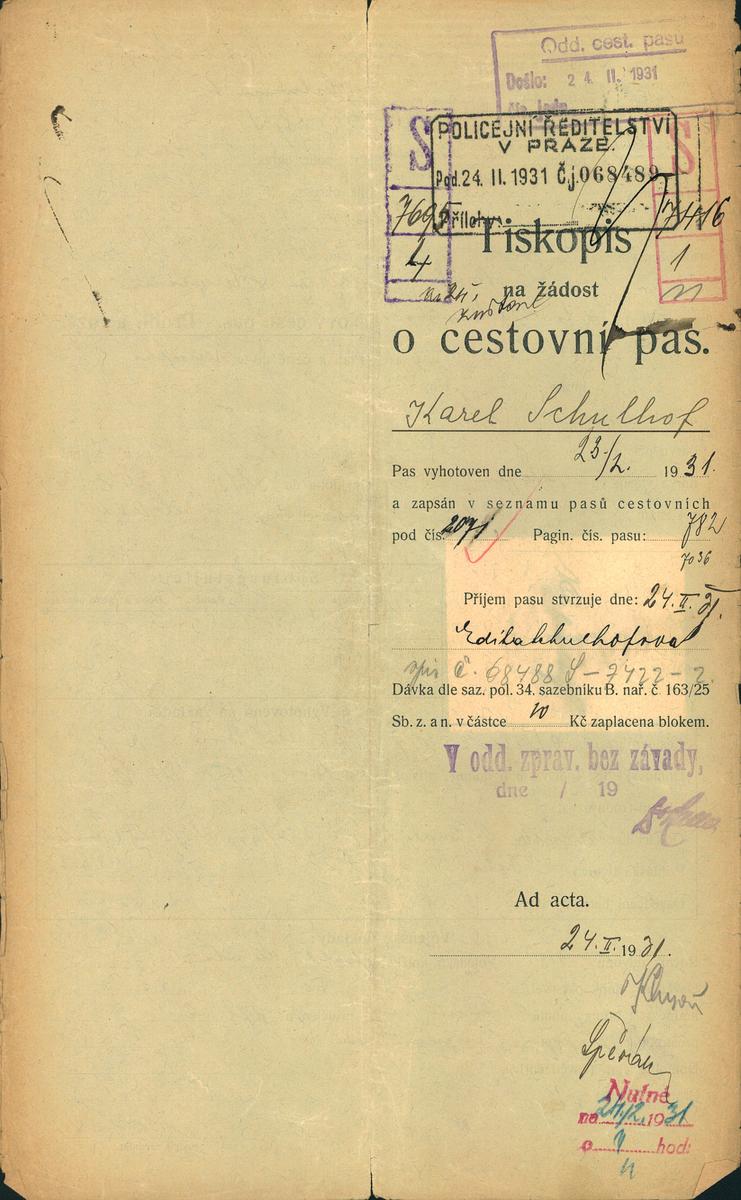 Odd. cest. pasů
Došlo: 24. II. 1931
POLICEJNÍ ŘEDITELSTVÍ
V PRAZE.
Pod. 24. II. 1931 Č.j. 068489
Přílohy:
S
7695
4
S
7416
1
Tiskopis
na žádost
o cestovní pas.
Karel Schulhof
Pas vyhotoven dne 23/2. 1931.
a zapsán v seznamu pasů cestovních
pod čís. 2071 Pagin. čís. pasu: 782
7036
Příjem pasu stvrzuje dne: 24. II. 31.
Edita Schulhofova
spis č. 68488 S-7422-2
Dávka dle saz. pol. 34. sazebníku B. nař. č 163/25
Sb. z. a n. v částce 10 Kč zaplacena blokem.
V odd. zprav. bez závady,
dne / 19
Ad acta.
24. II. 1931.
Nutné
na 24/2. 1931
o hod: